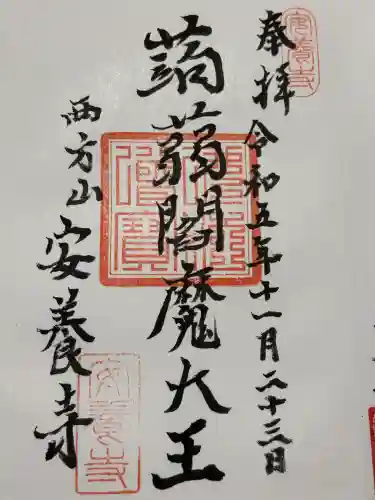 奉拝
令和五年十一月二十三日
蒟蒻閻魔大王
西方山
安養寺
安養寺
安養寺
佛法僧寳